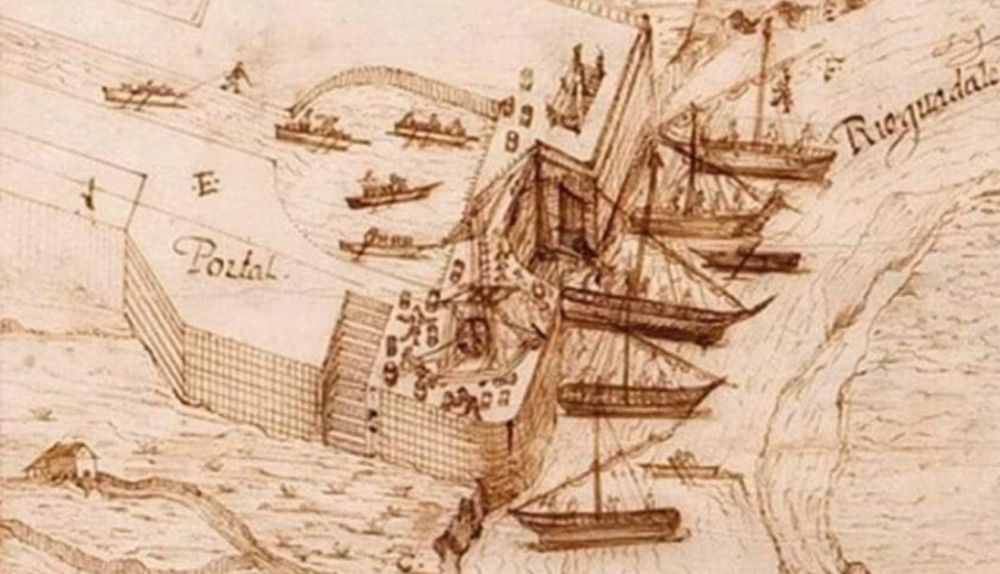 Rioguadale
·E·
Portal.